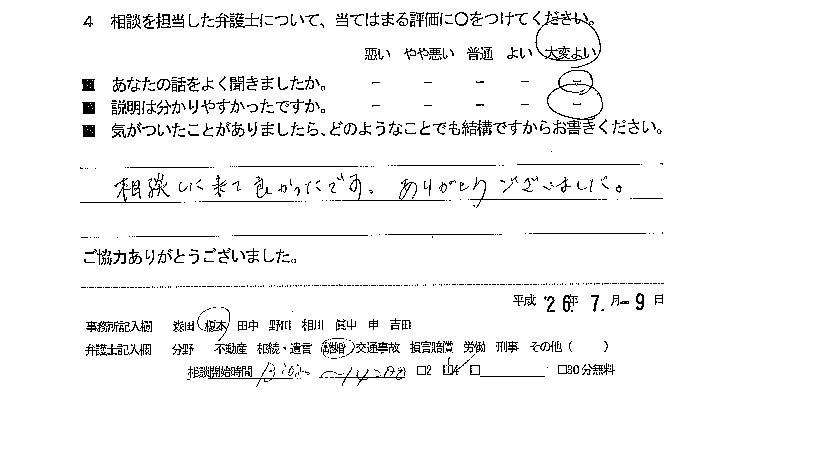 4 相談を担当した弁護士について、当てはまる評価に〇をつけてください。
悪い やや悪い 普通 よい 大変よい
■ あなたの話をよく聞きましたか。 － － － － －
■ 説明は分かりやすかったですか。 － － － － －
■ 気がついたことがありましたら、どのようなことでも結構ですからお書きください。
相談しに来て良かったです。ありがとうございました。
ご協力ありがとうございました。
平成 '26年 7.月-9日
事務所記入欄 森田 榎本 田中 野田 相川 眞中 申 吉田
弁護士記入欄 分野 不動産 相続・遺言 離婚 交通事故 損害賠償 労働 刑事 その他( )
相談開始時間 13:00 ～14:00 □2 □4 □ □30分無料